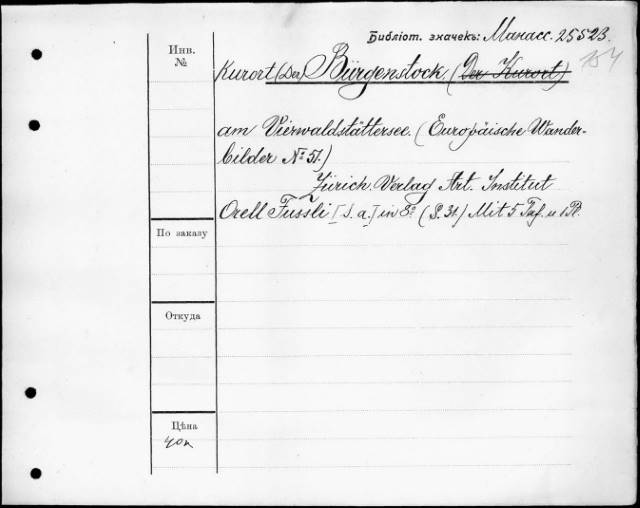 Библіот. значекъ: Манасс. 25523.
154
Инв.
№
Kurort (Der) Bürgenstock. (Der Kurort)
am Vierwaldstättersee. (Europäische Wander-
bilder № 51.)
Zürich. Verlag Art. Institut
Orell Füssli [s. a.] in 8° (S. 31.) Mit 5 Taf. u. 1 Pl.
По заказу
Откуда
Цѣна
40к